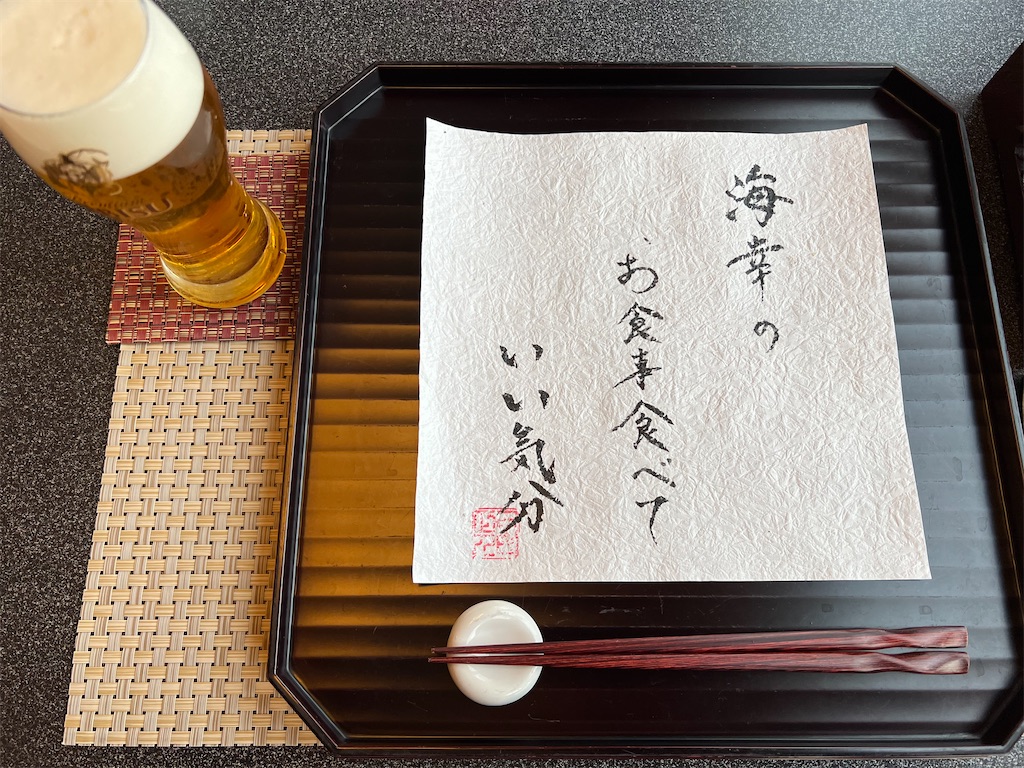 海幸の
お食事食べて
いい気分